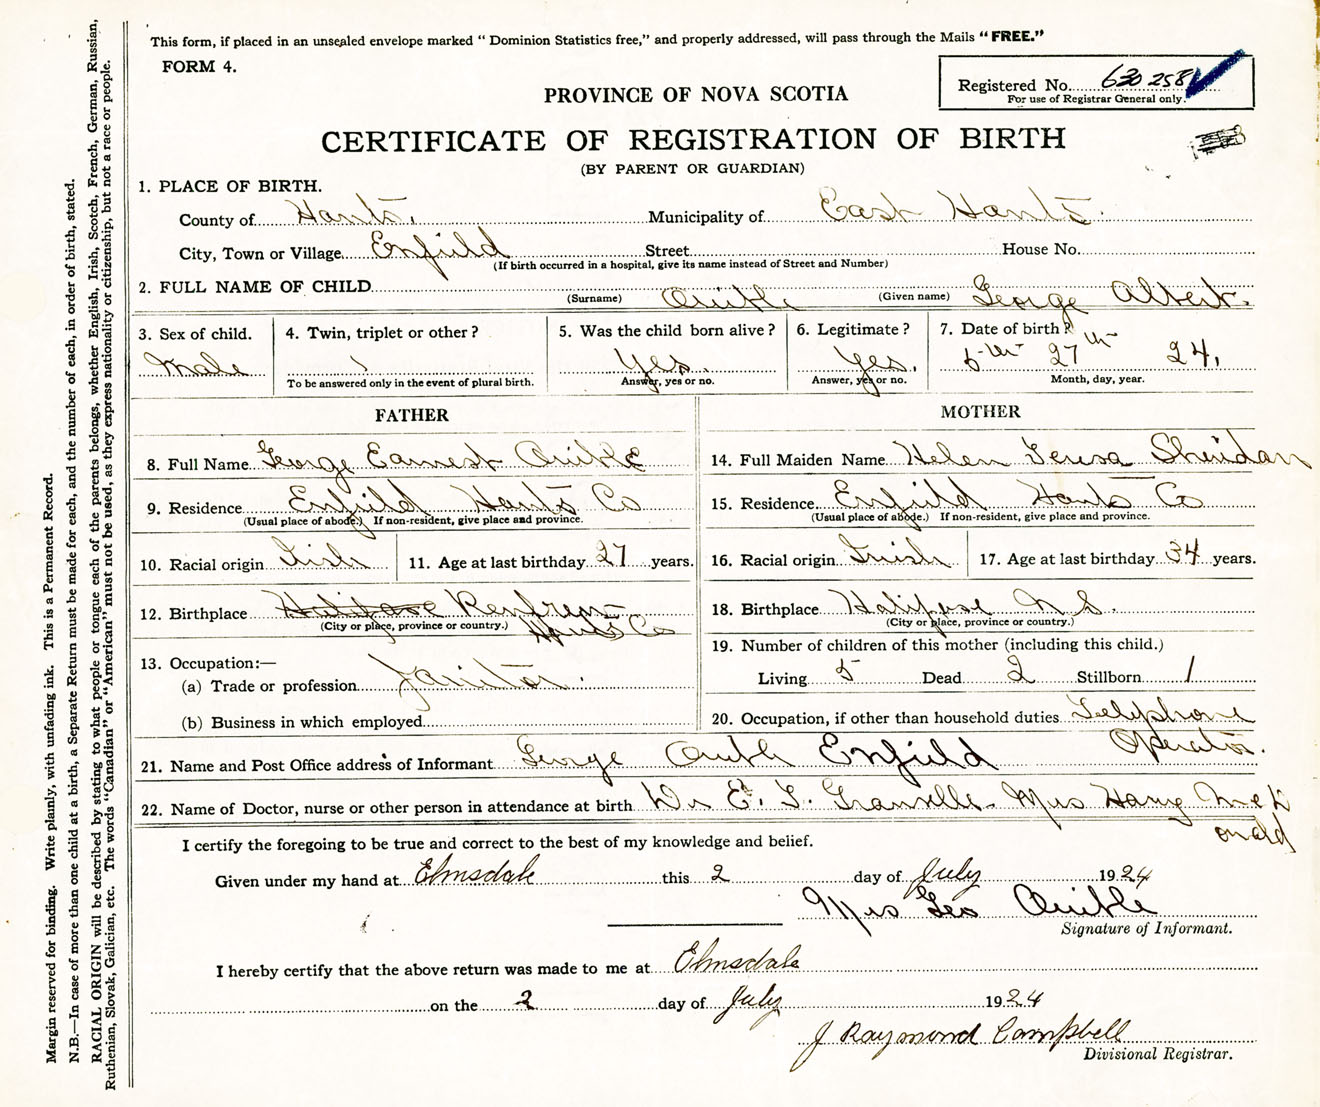 This form, if placed in an unsealed envelope marked “ Dominion Statistics free,” and properly addressed, will pass through the Mails “ FREE.”
FORM 4.
Registered No. 630 258
For use of Registrar General only.
PROVINCE OF NOVA SCOTIA
CERTIFICATE OF REGISTRATION OF BIRTH
(BY PARENT OR GUARDIAN)
1. PLACE OF BIRTH.
County of Hants. Municipality of East Hants.
City, Town or Village Enfield Street House No.
(If birth occurred in a hospital, give its name instead of Street and Number)
2. FULL NAME OF CHILD
(Surname) (Given name) George Albert.
3. Sex of child. 4. Twin, triplet or other ? 5. Was the child born alive ? 6. Legitimate ? 7. Date of birth ?
Male Yes. Yes. 27th 24.
To be answered only in the event of plural birth. Answer, yes or no. Answer, yes or no. Month, day, year.
FATHER MOTHER
8. Full Name George Earnest 14. Full Maiden Name Helen Teresa Sheridan
9. Residence Enfield Hants Co 15. Residence Enfield Hants Co
(Usual place of abode.) If non-resident, give place and province. (Usual place of abode.) If non-resident, give place and province.
10. Racial origin Irish 11. Age at last birthday 27 years. 16. Racial origin Irish 17. Age at last birthday 34 years.
12. Birthplace Halifax Renfrew 18. Birthplace Halifax N.S.
(City or place, province or country.) Hants Co (City or place, province or country.)
19. Number of children of this mother (including this child.)
13. Occupation:—
(a) Trade or profession Janitor. Living 5 Dead 2 Stillborn 1
(b) Business in which employed 20. Occupation, if other than household duties Telephone
Operator.
21. Name and Post Office address of Informant George Enfield
22. Name of Doctor, nurse or other person in attendance at birth Dr E. Mrs Harry McD
onald
I certify the foregoing to be true and correct to the best of my knowledge and belief.
Given under my hand at Elmsdale this 2 day of July 1924
Mrs Geo
Signature of Informant.
I hereby certify that the above return was made to me at Elmsdale
on the 2 day of July 1924
J Raymond Campbell
Divisional Registrar.
Margin reserved for binding. Write plainly, with unfading ink. This is a Permanent Record.
N.B.—In case of more than one child at a birth, a Separate Return must be made for each, and the number of each, in order of birth, stated.
RACIAL ORIGIN will be described by stating to what people or tongue each of the parents belongs, whether English, Irish, Scotch, French, German, Russian,
Ruthenian, Slovak, Galician, etc. The words “Canadian” or “American” must not be used, as they express nationality or citizenship, but not a race or people.